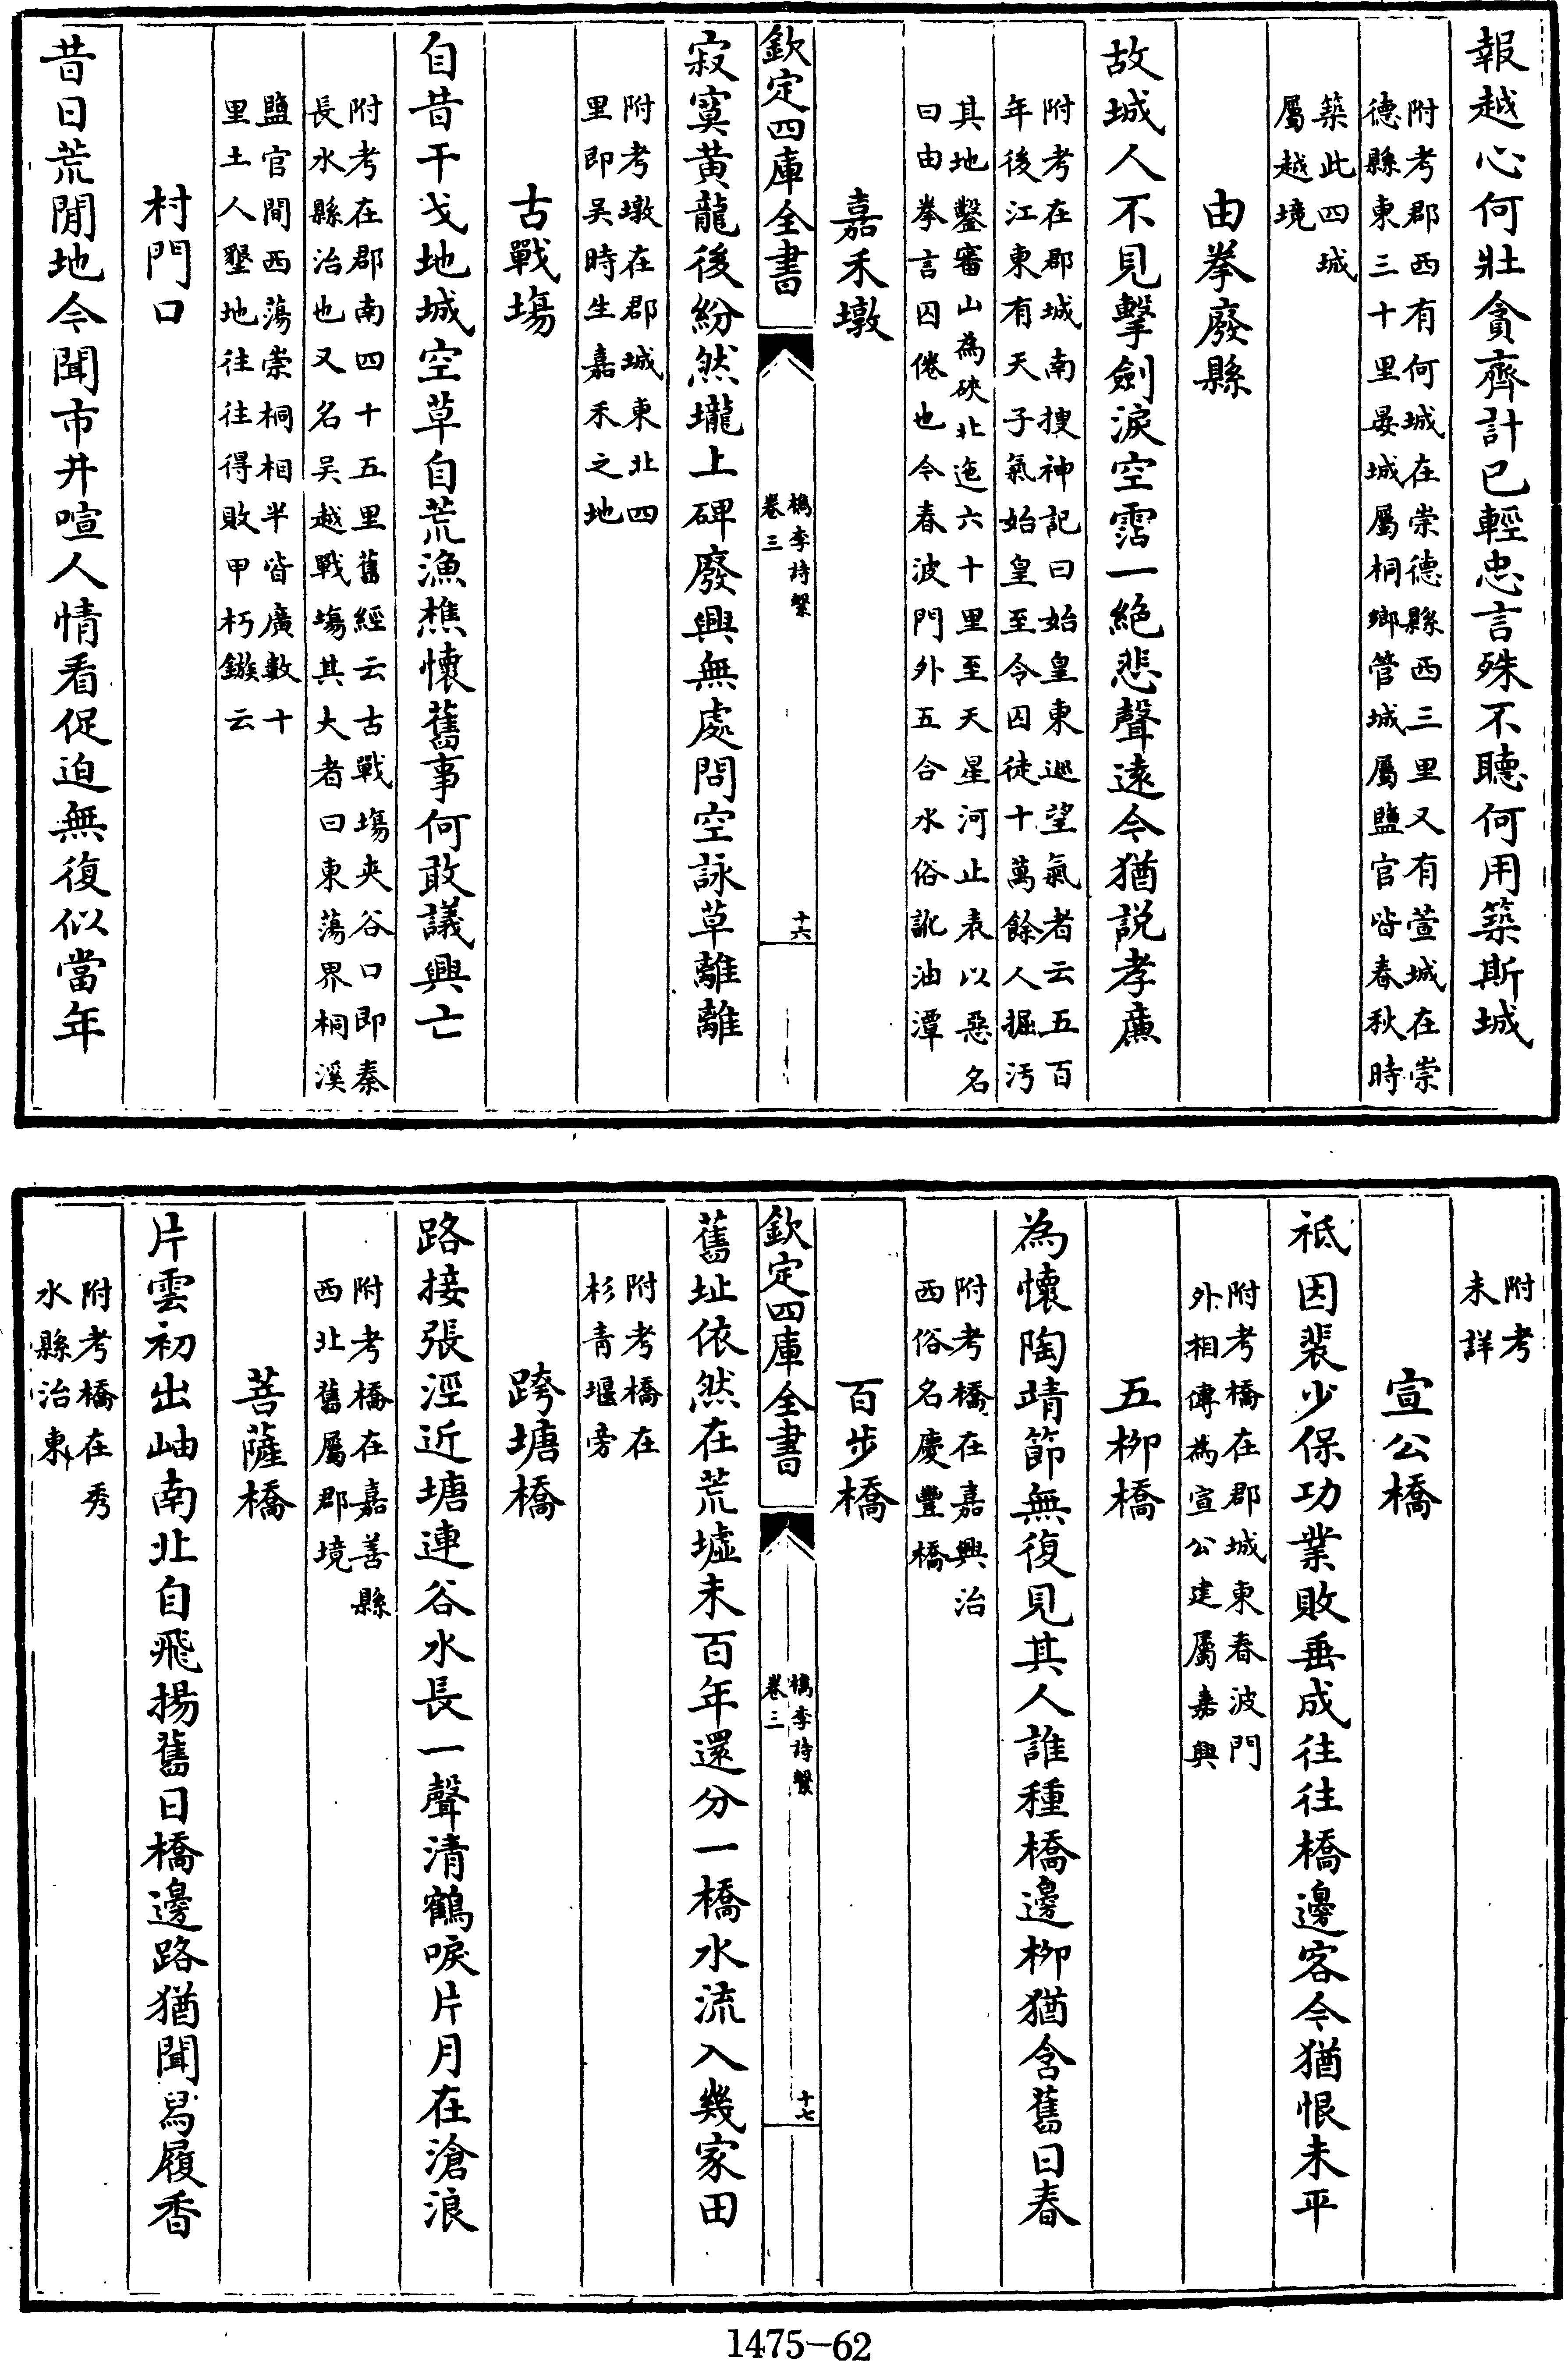 報越心何壯貪齊計已輕忠言殊不聽何用築斯城
附考郡西有何城在崇德縣西三里又有萱城在崇
德縣東三十里晏城屬桐鄉管城屬鹽官皆春秋時
築此四城
屬越境
由拳廢縣
故城人不見擊劍淚空霑一絶悲聲遠今猶説孝廉
附考在郡城南搜神記曰始皇東廵望氣者云五百
年後江東有天子氣始皇至令囚徒十萬餘人掘汚
其地鑿審山為硤北迤六十里至天星河止表以惡名
曰由拳言囚倦也今春波門外五合水俗訛油潭
嘉禾墩
欽定四庫全書
檇李詩繫
卷三
十六
寂寞黄龍後紛然壠上碑廢興無處問空詠草離離
附考墩在郡城東北四
里即吴時生嘉禾之地
古戰塲
自昔干戈地城空草自荒漁樵懷舊事何敢議興亡
附考在郡南四十五里舊經云古戰塲夾谷口即秦
長水縣治也又名吴越戰塲其大者曰東蕩界桐溪
鹽官間西蕩崇桐相半皆廣數十
里土人墾地往往得敗甲朽鏃云
村門口
昔日荒閒地今聞市井喧人情看促迫無復似當年
附考
未詳
宣公橋
祗因裴少保功業敗垂成往往橋邊客今猶恨未平
附考橋在郡城東春波門
外相傳為宣公建屬嘉興
五柳橋
為懷陶靖節無復見其人誰種橋邊柳猶含舊日春
附考橋在嘉興治
西俗名慶豐橋
百步橋
欽定四庫全書
檇李詩繫
卷三
十七
舊址依然在荒墟未百年還分一橋水流入幾家田
附考橋在
杉青堰旁
跨塘橋
路接張涇近塘連谷水長一聲清鶴唳片月在滄浪
附考橋在嘉善縣
西北舊屬郡境
菩薩橋
片雲初出岫南北自飛揚舊日橋邊路猶聞舄履香
附考橋在秀
水縣治東
1475-62